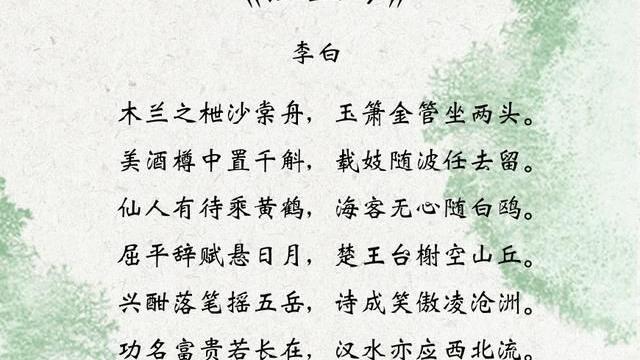 李白
木兰之枻沙棠舟，玉箫金管坐两头。
美酒樽中置千斛，载妓随波任去留。
仙人有待乘黄鹤，海客无心随白鸥。
屈平辞赋悬日月，楚王台榭空山丘。
兴酣落笔摇五岳，诗成笑傲凌沧洲。
功名富贵若长在，汉水亦应西北流。